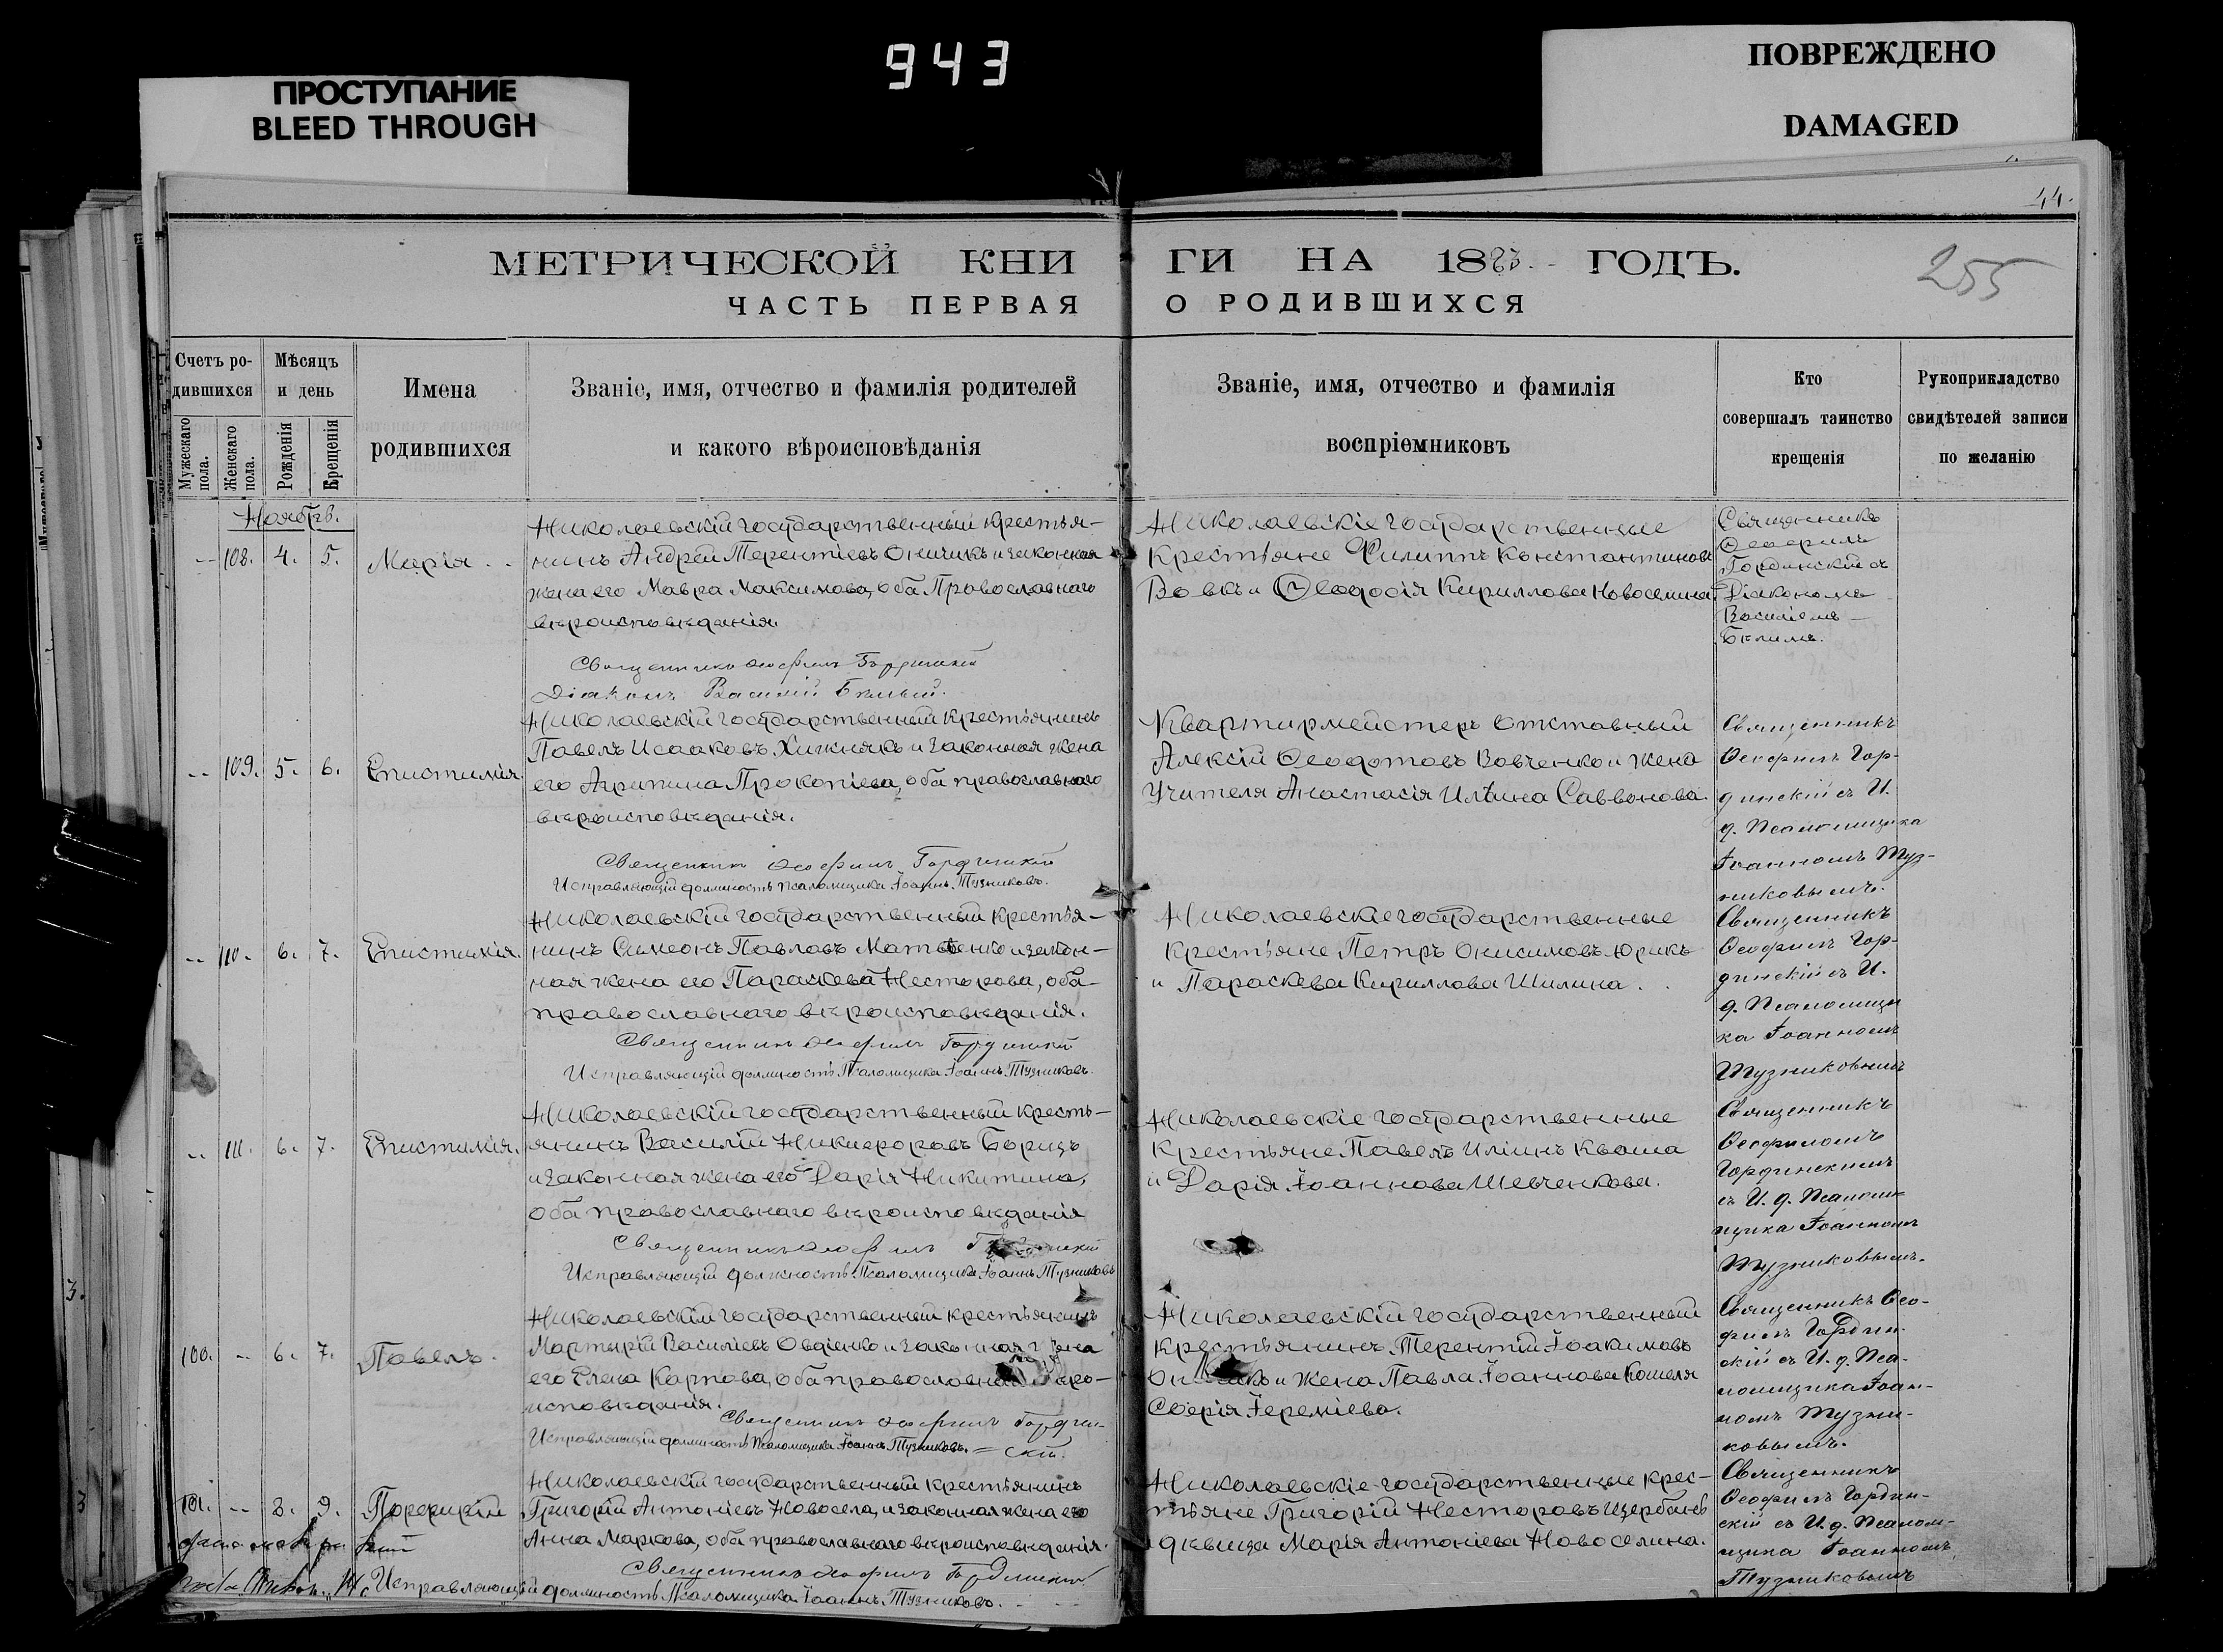 943
ПРОСТУПАНИЕ
BLEED THROUGH
ПОВРЕЖДЕНО
DAMAGED
44.
255
МЕТРИЧЕСКОЙ КНИ
ГИ НА 1883. ГОДЪ.
ЧАСТЬ ПЕРВАЯ
О РОДИВШИХСЯ
Счетъ ро-
дившихся
Мужескаго
пола.
Женскаго
пола.
Мѣсяцъ
и день
Рожденія
Крещенія
Имена
родившихся
Званіе, имя, отчество и фамилія родителей
и какого вѣроисповѣданія
Званіе, имя, отчество и фамилія
воспріемниковъ
Кто
совершалъ таинство
крещенія
Рукоприкладство
свидѣтелей записи
по желанію
Ноябрь.
-- 108. 4. 5. Марія
Николаевскій государственный крестья-
нинъ Андрей Терентіевъ Оничикъ и законная
жена его Мавра Максимова, оба Православнаго
вѣроисповѣданія.
Священникъ Ѳеофилъ Гординскій
Діаконъ Василій Бѣлый.
Николаевскіе государственные
крестьяне Филиппъ Константиновъ
Вовкъ и Ѳеодосія Кириллова Новоселина.
Священникъ
Ѳеофилъ
Гординскій съ
Діакономъ
Василіемъ
Бѣлымъ.
-- 109. 5. 6. Епистимія
Николаевскій государственный крестьянинъ
Павелъ Исааковъ Хижнякъ и законная жена
его Агрипина Прокопіева, оба православнаго
вѣроисповѣданія.
Священникъ Ѳеофилъ Гординскій
Исправляющій должность псаломщика Іоаннъ Тузниковъ.
Квартирмейстеръ отставный
Алексій Ѳеодотовъ Вовченко и жена
Учителя Анастасія Ильина Саввонова.
Священникъ
Ѳеофилъ Гор-
динскій съ И.
д. Псаломщика
Іоанномъ Туз-
никовымъ.
-- 110. 6. 7. Епистимія.
Николаевскій государственный крестья-
нинъ Симеонъ Павловъ Матвѣенко и закон-
ная жена его Параскева Несторова, оба
православнаго вѣроисповѣданія.
Священникъ Ѳеофилъ Гординскій
Исправляющій должность Псаломщика Іоаннъ Тузниковъ.
Николаевскіе государственные
крестьяне Петръ Онисимовъ Юрикъ
и Параскева Кириллова Шилина.
Священникъ
Ѳеофилъ Гор-
динскій съ И.
д. Псаломщи
ка Іоанномъ
Тузниковымъ
-- 111. 6. 7. Епистимія.
Николаевскій государственный кресть-
янинъ Василій Никифоровъ Борищъ
и законная жена его Дарія Никитина,
оба православнаго вѣроисповѣданія
Священникъ Ѳеофилъ
Исправляющій должность Псаломщика Іоаннъ Тузниковъ
Николаевскіе государственные
крестьяне Павелъ Иліинъ Кваша
и Дарія Іоаннова Шевченкова.
Священникъ
Ѳеофиломъ
Гординскимъ
съ И. д. Псалом
щика Іоанномъ
Тузниковымъ.
100. -- 6. 7. Павелъ.
Николаевскій государственный крестьянинъ
Мартырій Василіевъ Овдіенко и законная жена
его Елена Карпова, оба православнаго вѣро-
исповѣданія.
Священникъ Ѳеофилъ Гордин-
скій.
Исправляющій должность Псаломщика Іоаннъ Тузниковъ.
Николаевскій государственный
крестьянинъ Терентій Іоакимовъ
и жена Павла Іоаннова Кошеля
Іереміева.
Священникъ Ѳео-
филъ Гордин-
скій съ И. д. Пса-
ломщика Іоан-
номъ Тузни-
ковымъ.
101. -- 8. 9. Порфирій
Николаевскій государственный крестьянинъ
Григорій Антоніевъ Новосела, и законная жена его
Анна Маркова, оба православнаго вѣроисповѣданія.
Священникъ Ѳеофилъ Гординскій
Исправляющій должность Псаломщика Іоаннъ Тузниковъ.
Николаевскіе государственные крес-
тьяне Григорій Несторовъ Щербань
дѣвица Марія Антоніева Новоселина.
Священникъ
Ѳеофилъ Гордин-
скій съ И. д. Псалом-
щика Іоанномъ
Тузниковымъ